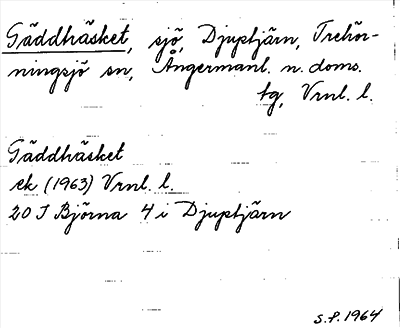 Gäddhäsket, sjö, Djuptjärn, Trehör-
ningsjö sn, Ångermanl. n. doms.
tg, Vrnl. l.
Gäddhäsket
ek (1963) Vrnl. l.
20 J Björna 4 i Djuptjärn
S.P. 1964